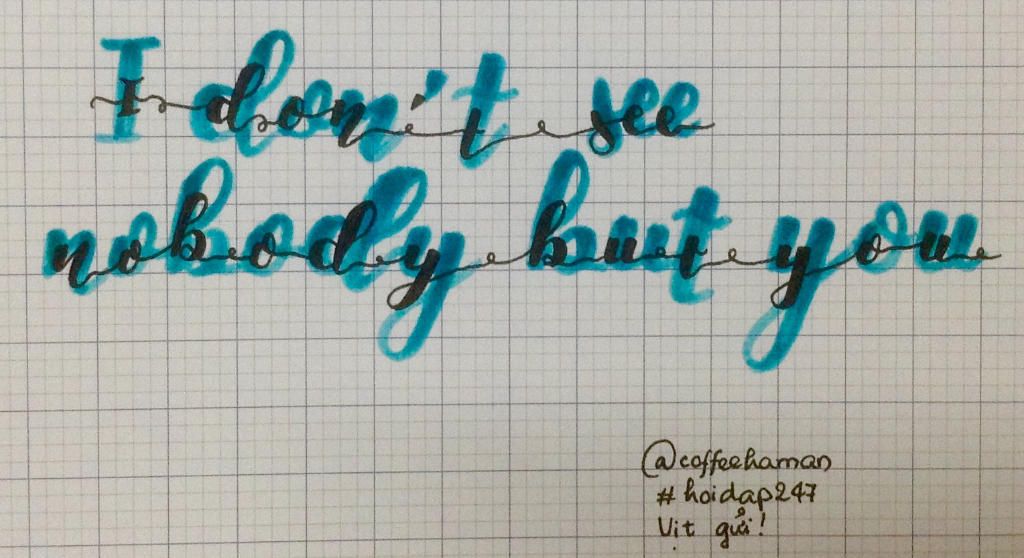 I don't see
nobody but you
@coffeehaman
#hoidap247
Vịt gửi!